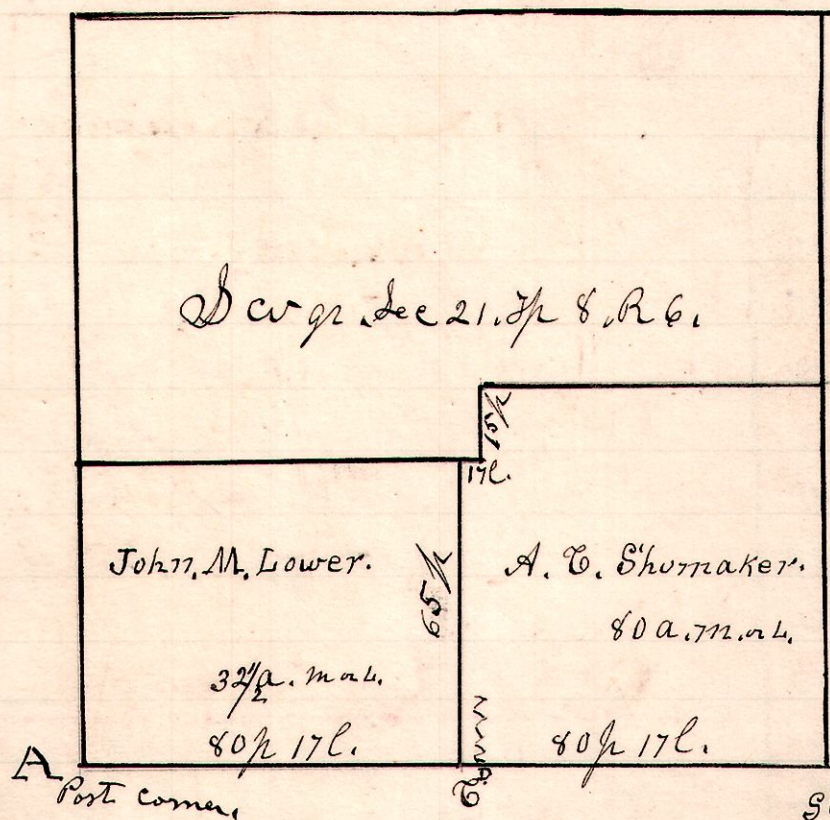 S W qr. Sec 21. Tp 8. R 6.
15 p
17 l.
John. M. Lower.
65 p
A. C. Shumaker.
80 a. m. or L.
32 1/2 a. m or L.
80 p 17 l.
80 p 17 l.
A
Post corner.
C
S